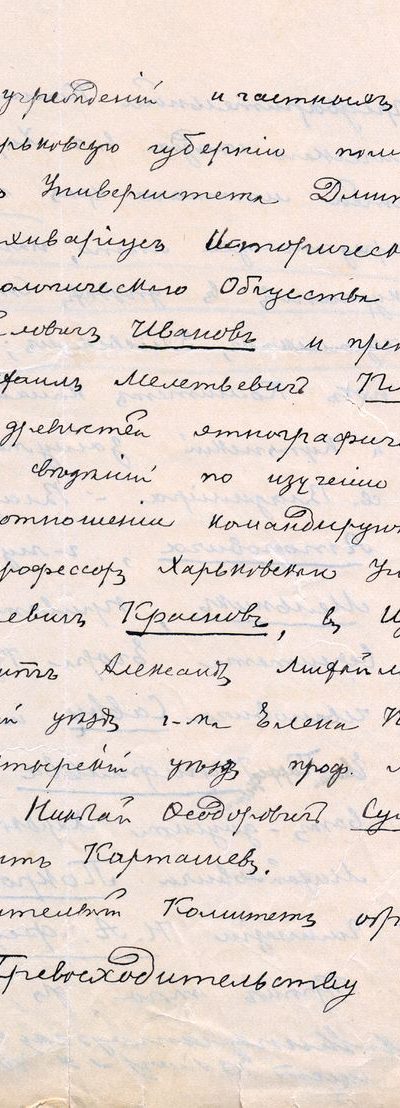 учрежденій и частнымъ
рьковскую губернію
Университета Дмит
хиваріусъ Историческ
ологическаго Общества
ловичъ Ивановъ и пре
хаилъ Мелетьевичъ Пл
древностей этнографиче
свѣдѣній по изученію
отношеніи командирую
рофессоръ Харьковскаго Ун
евичъ Красновъ, въ Из
нтъ Александръ Михайл
ій уѣздъ г-жа Елена
тырскій уѣздъ проф.
Николай Ѳеодоровичъ Сум
нтъ Карташевъ.
ительный Комитетъ обр
Превосходительству